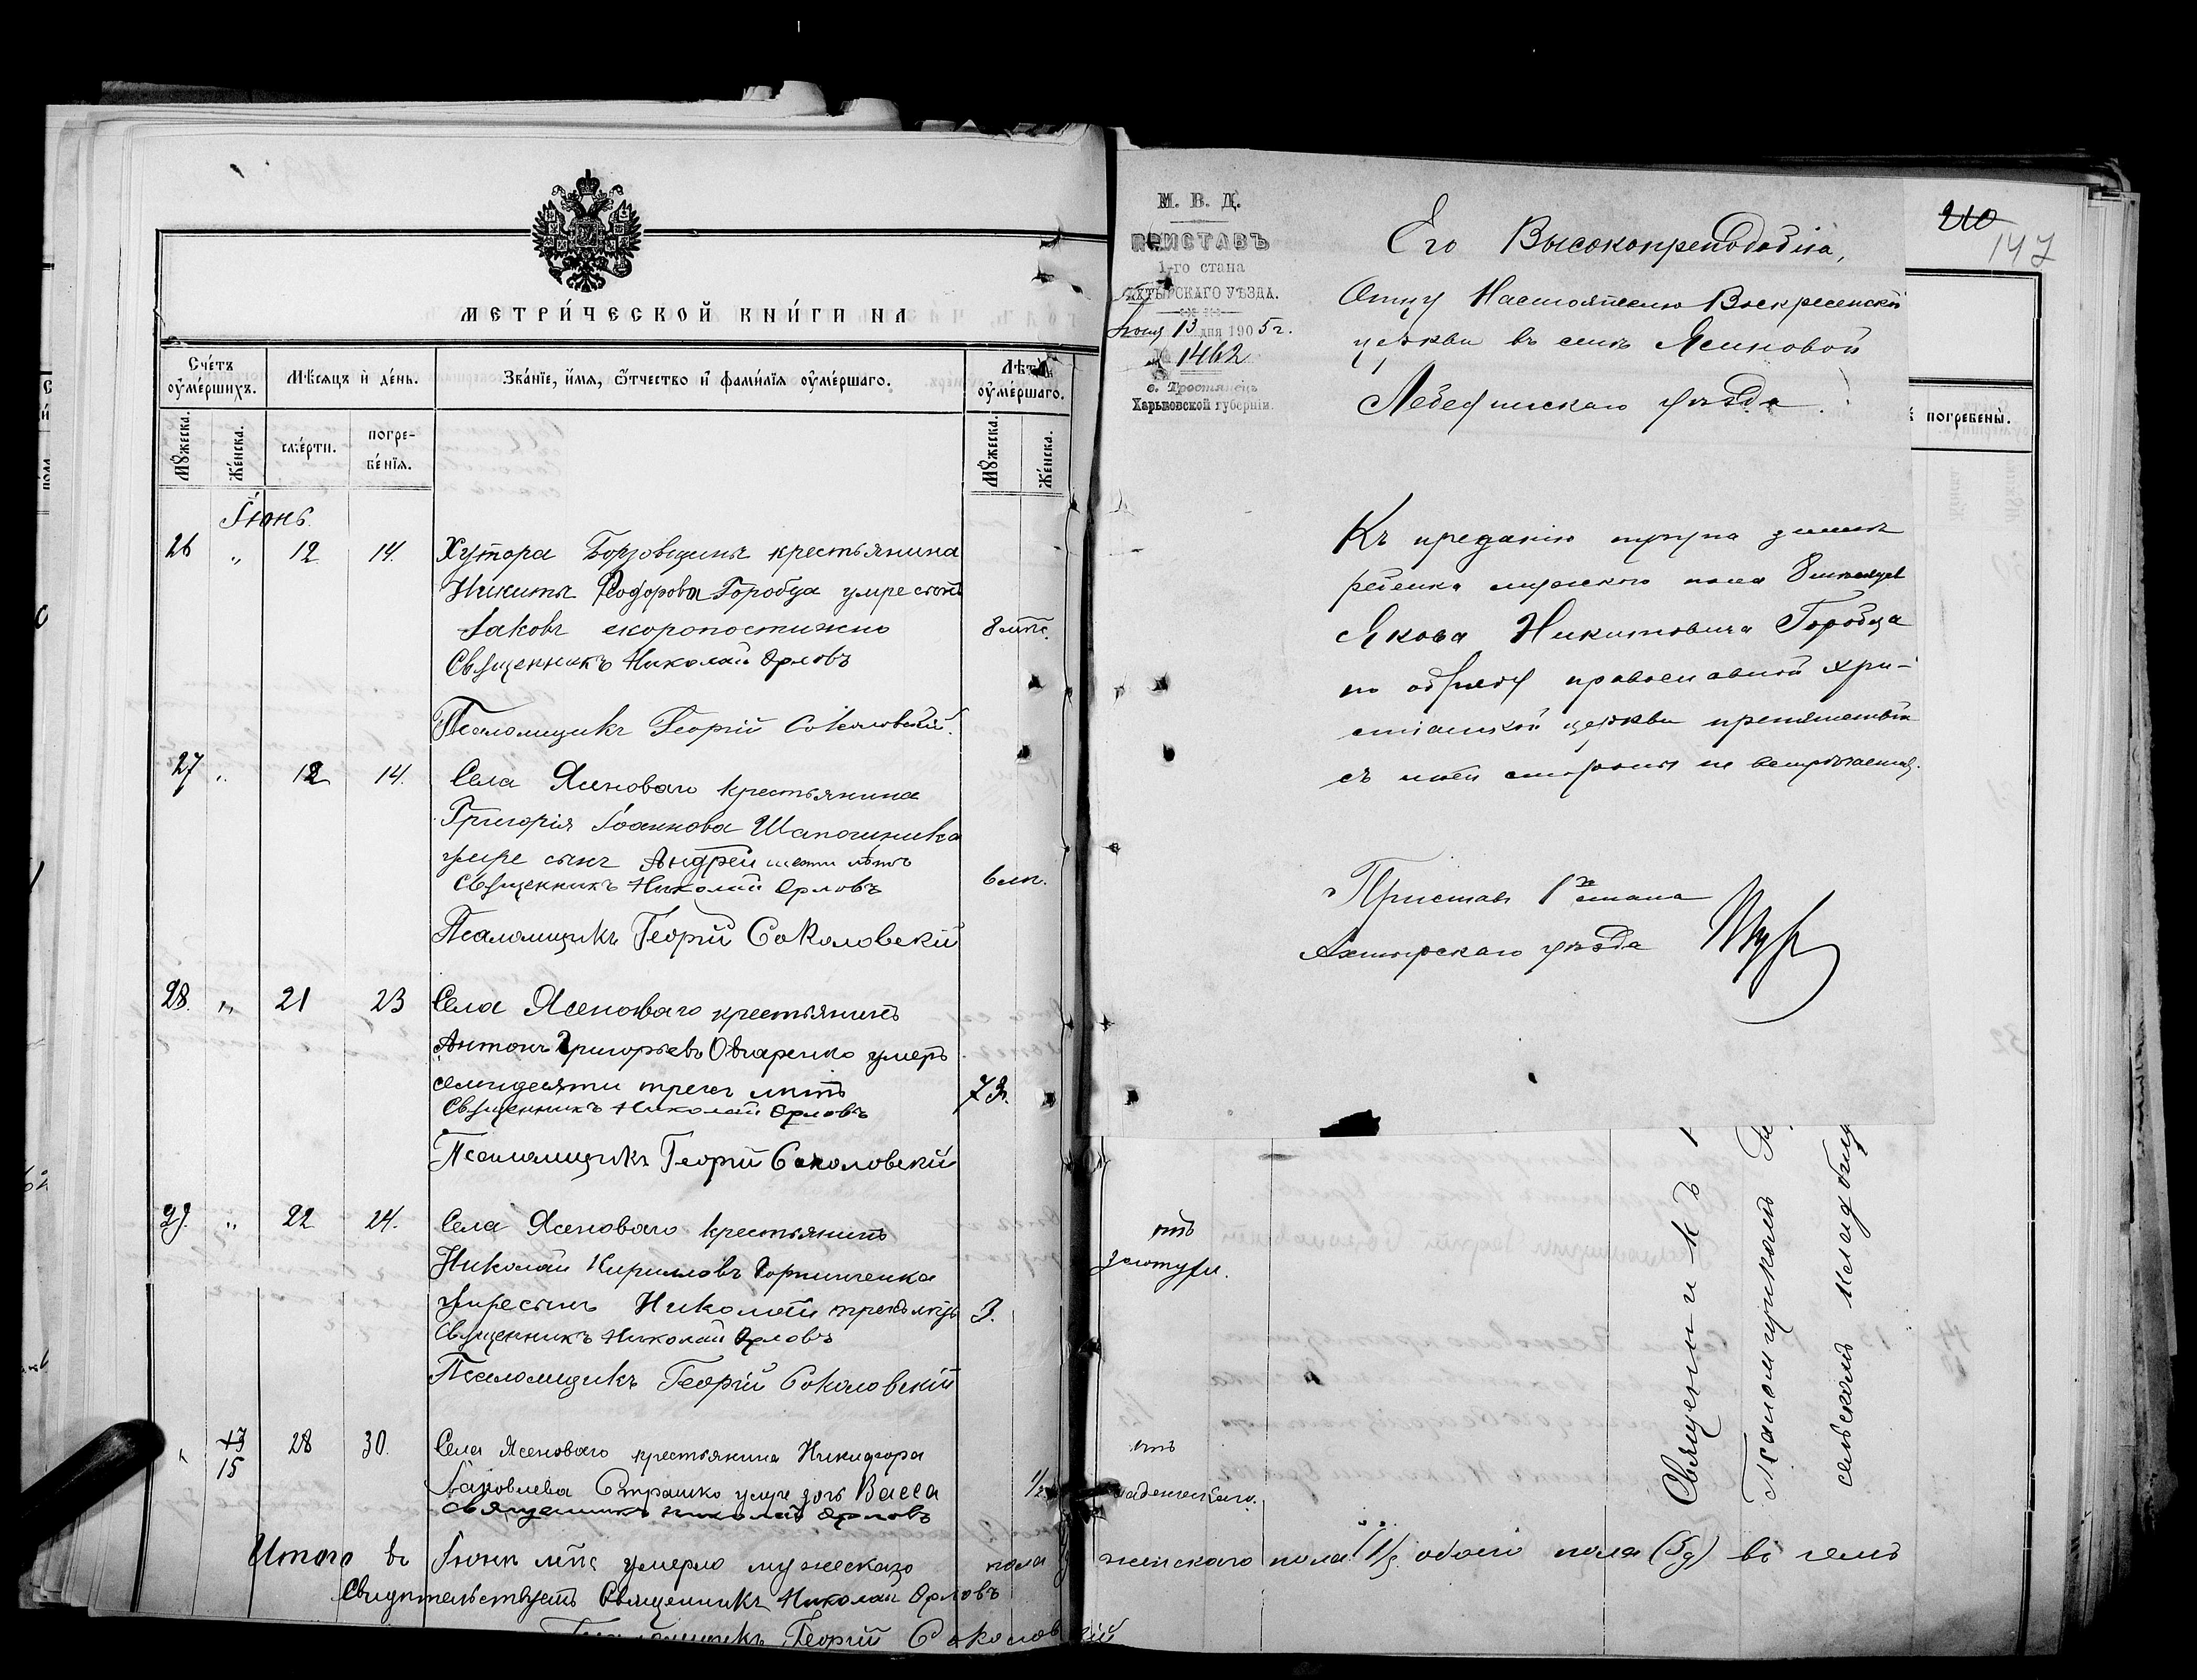 МЕТРИ́ЧЕСКОЙ КНИ́ГИ НА
Сче́тъ ᲂумéршихъ.
Мѣ́сяцъ и҆ де́нь.
Зва́нїе, и҆́мя, ѻ҆́тчество и҆ фами́лїя ᲂуме́ршаго.
Лѣта ᲂуме́ршаго.
Мꙋжеска.
Же́нска.
сме́рти.
погре-
бе́нїя.
Мꙋжеска.
Же́нска.
Іюнь.
26 " 12 14. Хутора Борзовщины крестьянина
Никиты Ѳеодорова Горобца умре сынъ
Іаковъ скоропостижно 8 мѣс.
Священникъ Николай Орловъ
Псаломщикъ Георгій Соколовскій.
27 " 12 14. Села Ясеноваго крестьянина
Григорія Іоаннова Шапочника
умре сынъ Андрей шести лѣтъ
Священникъ Николай Орловъ 6 лѣт.
Псаломщикъ Георгій Соколовскій
28. " 21 23 Села Ясеноваго крестьянинъ
Антонъ Григорьевъ Овчаренко умеръ
семидесяти трехъ лѣтъ 73.
Священникъ Николай Орловъ
Псаломщикъ Георгій Соколовскій
29. " 22 24. Села Ясеноваго крестьянинъ
Николай Кирилловъ
умре сынъ Николай 3.
Священникъ Николай Орловъ
Псаломщикъ Георгій Соколовскій
13
15 28 30. Села Ясеноваго крестьянина Никифора
Іаковлева Страшко умре дочь Васса 1/2
Священникъ Николай Орловъ
Итого въ Іюнѣ мѣс умерло мужескаго пола женскаго пола обоего пола въ чемъ
Свидѣтельствуетъ Священникъ Николай Орловъ
Псаломщикъ Георгій Соколовскій
М. В. Д.
ПРИСТАВЪ
1-го стана
АХТЫРСКАГО УѢЗДА.
Іюня 13 дня 1905 г.
№ 1462
с. Тростянецъ
Харьковской губерніи.
210
147
Его Высокопреподобію,
Отцу Настоятелю Воскресенской
церкви въ селѣ Ясеновой
Лебединскаго уѣзда.
погребены.
Къ преданію трупа землѣ
ребенка мужского пола 8 мѣсяцев
Якова Никитовича Горобца
по обряду православной хри-
стіанской церкви препятствій
съ моей стороны не встрѣчается.
Приставъ 1го стана
Ахтырскаго уѣзда
отъ
отъ
младенческаго.
Священникъ
Псаломщикомъ
сельскомъ кладбищ